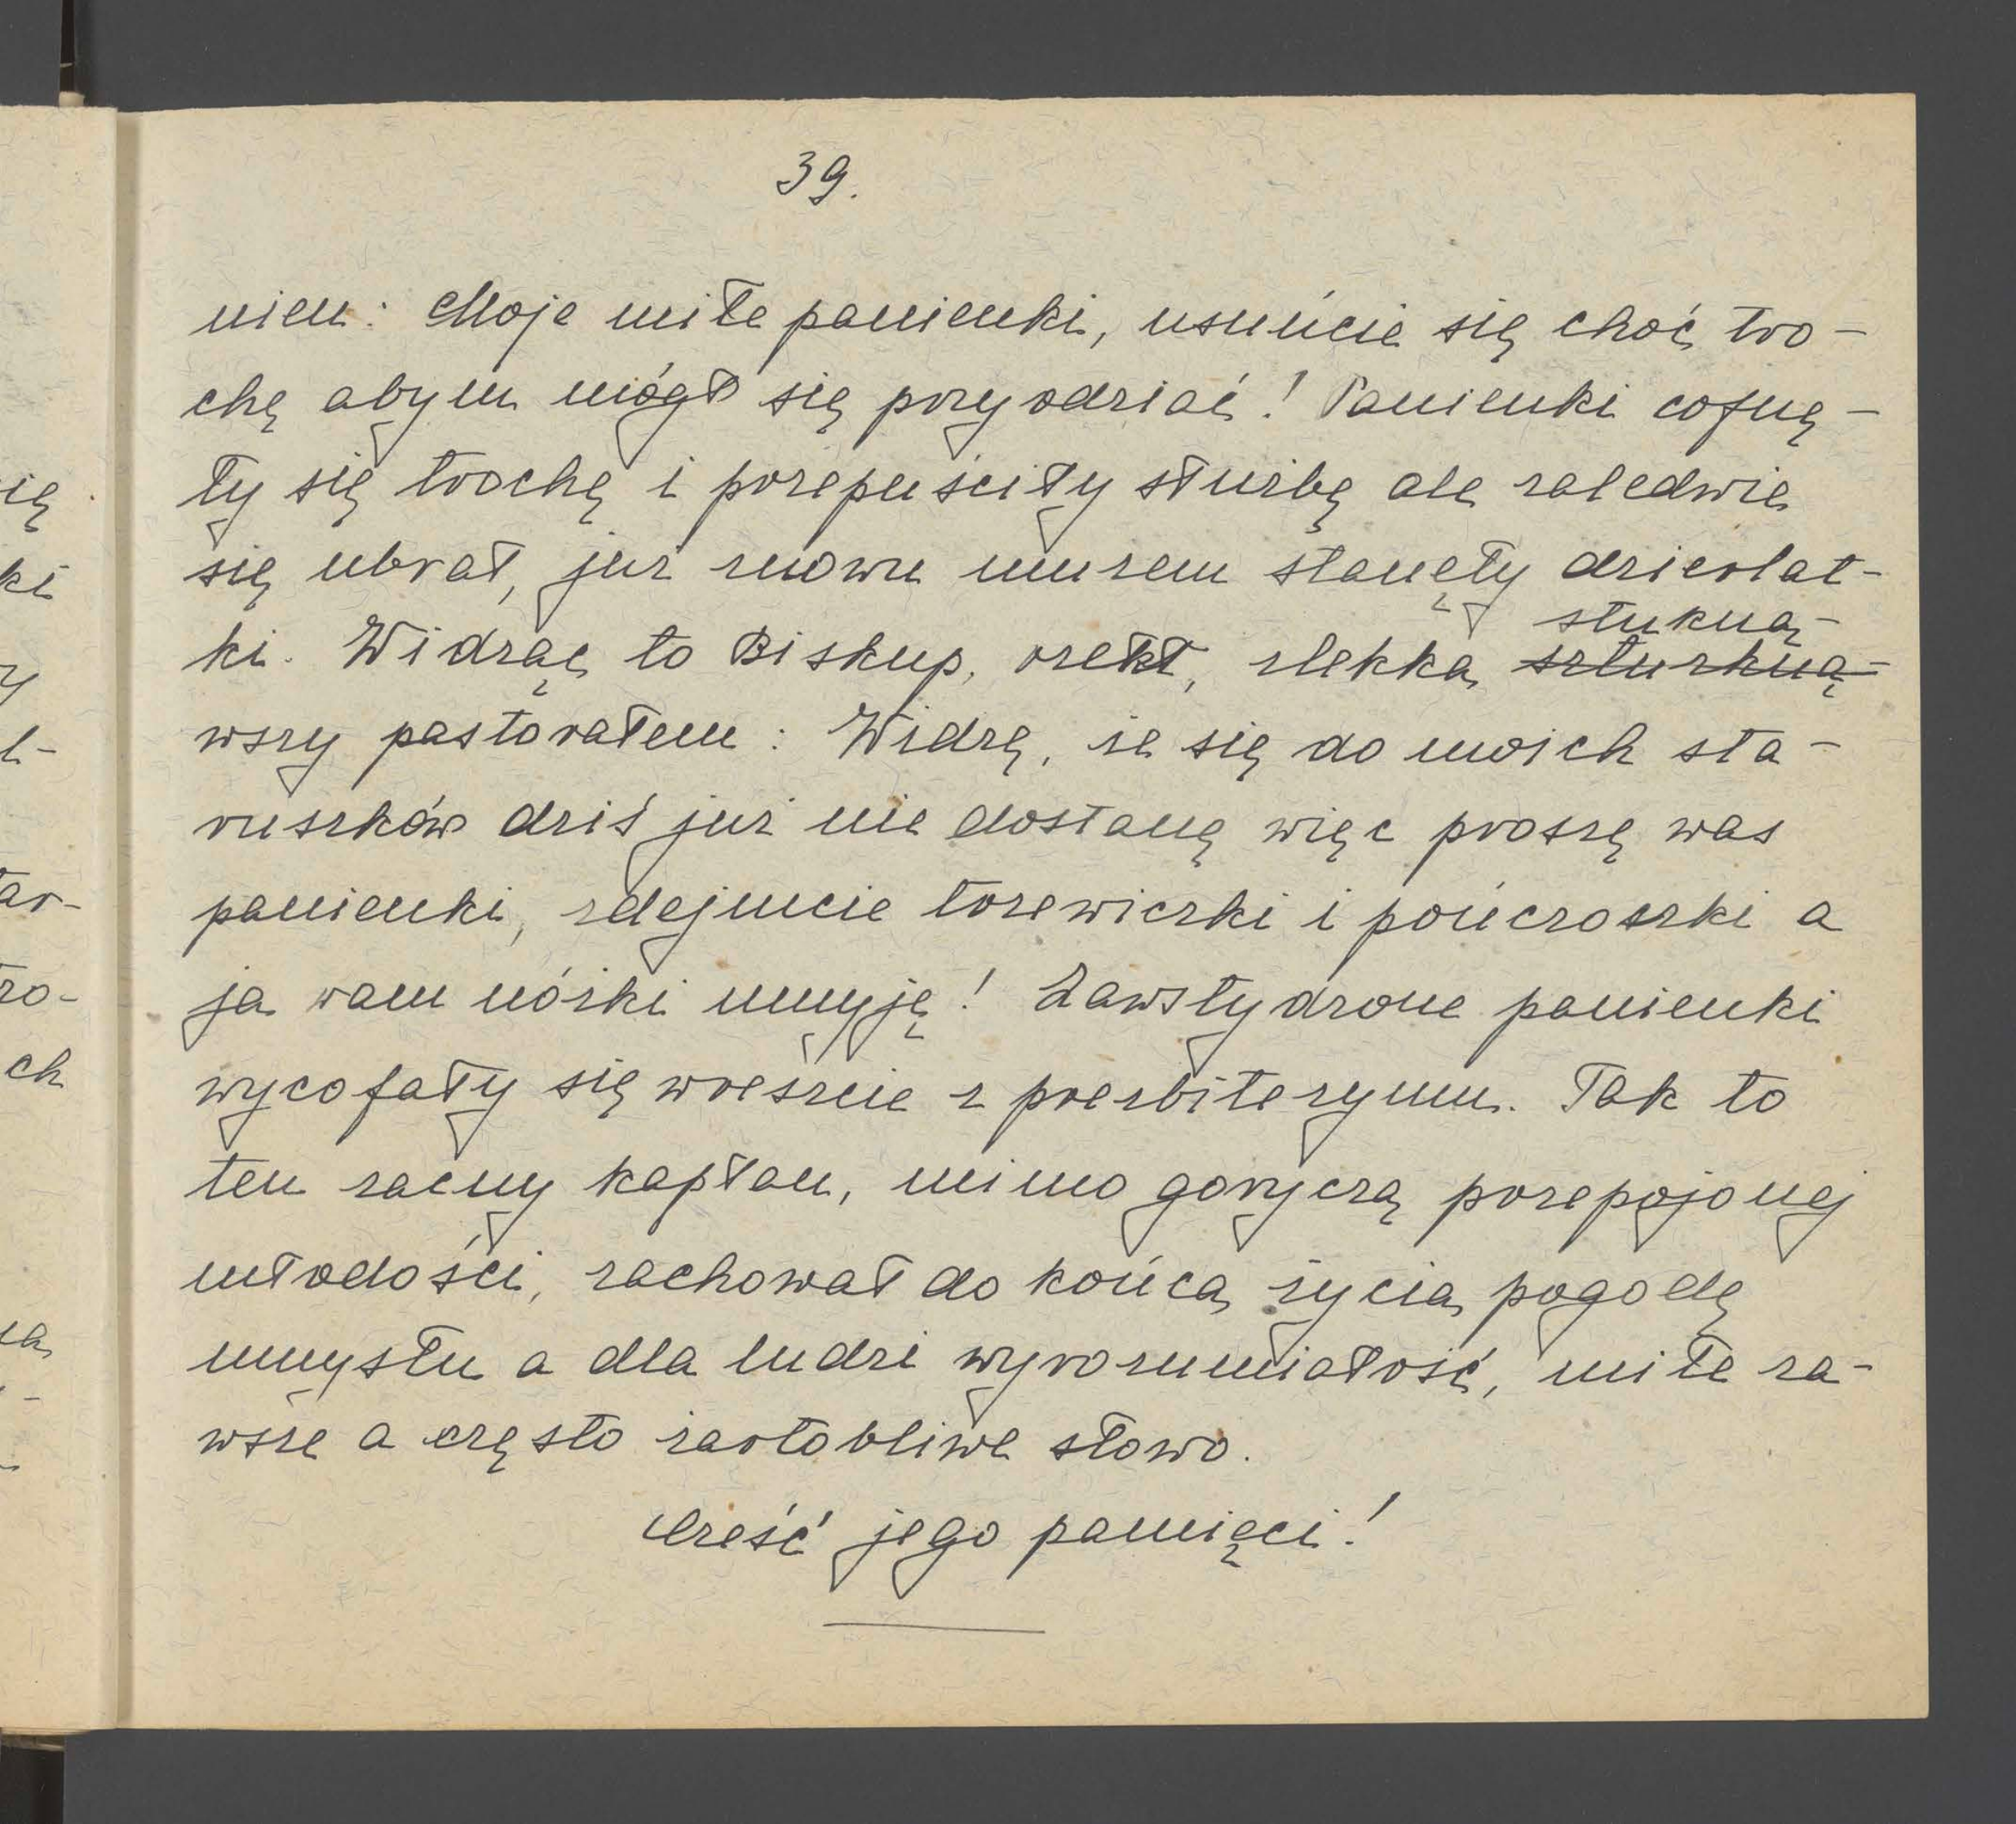 39.
niem: Moje miłe panienki, usuńcie się choć tro-
chę abym mógł się przyodziać! Panienki cofnę-
ły się trochę i przepuściły służbę ale zaledwie
się ubrał, już znowu murem stanęły dzierlat-
ki. Widząc to Biskup, rzekł, zlekka szturkną-
stukną-
wszy pastorałem: Widzę, że się do moich sta-
ruszków dziś już nie dostanę więc proszę was
panienki, zdejmcie trzewiczki i pończoszki a
ja wam nóżki umyję! Zawstydzone panienki
wycofały się wreszcie z prezbiterymu. Tak to
ten zacny kapłan, mimo goryczą przepojonej
młodości, zachował do końca życia pogodę
umysłu a dla ludzi wyrozumiałość, miłe za-
wsze a często żartobliwe słowo.
Cześć jego pamięci!
ię
ki
y
ł-
ar-
ro-
ch